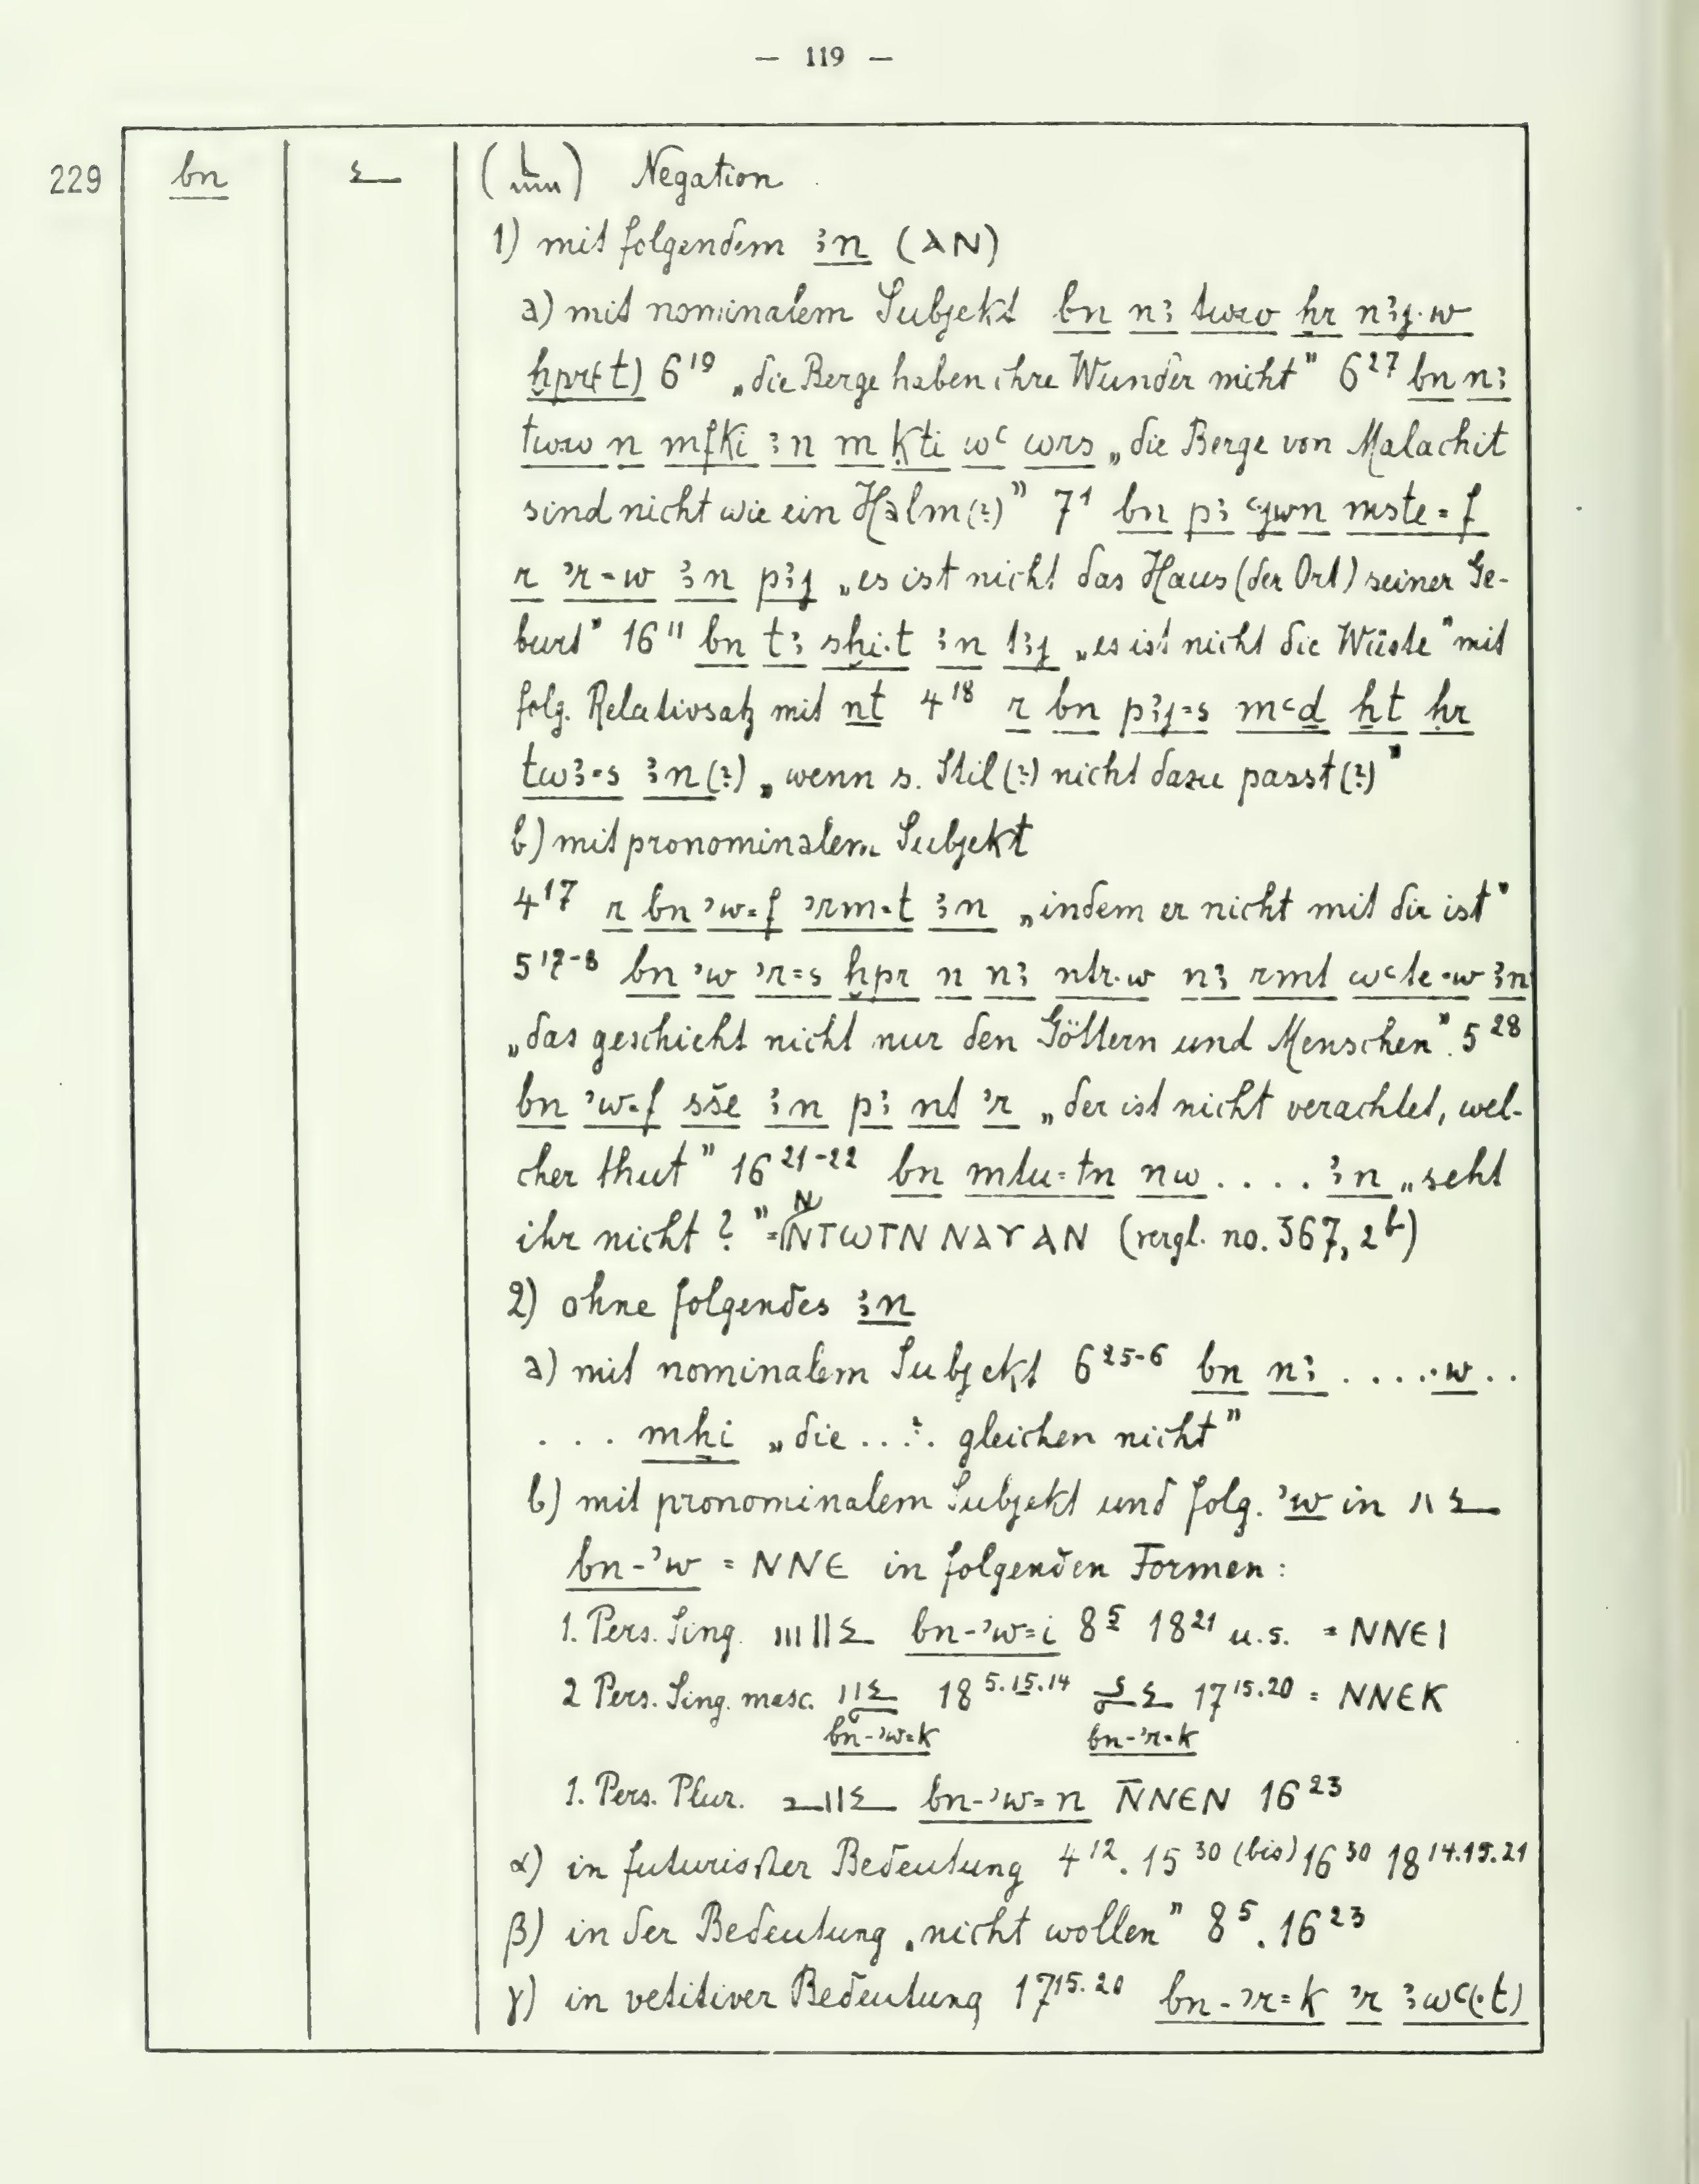 — 119 —
229 bn ( ) Negation
1) mit folgendem ꜣn (ⲁⲛ)
a) mit nominalem Subjekt bn nꜣ tww ẖr nꜣj·w
ḫpr(t) 6¹⁹ „die Berge haben ihre Wunder nicht" 6²⁷ bn nꜣ
tww n mfki ꜣn m ḳti wꜥ wrs „die Berge von Malachit
sind nicht wie ein Halm(?)" 7¹ bn pꜣ ꜥjwn mste=f
r ʾr=w ꜣn pꜣj „es ist nicht das Haus (der Ort) seiner Ge-
burt" 16¹¹ bn tꜣ sḫi·t ꜣn tꜣj „es ist nicht die Wüste" mit
folg. Relativsatz mit nt 4¹⁸ r bn pꜣj=s mꜥḏ ẖt ḥr
twꜣ=s ꜣn(?) „wenn s. Stil(?) nicht dazu passt(?)"
b) mit pronominalem Subjekt
4¹⁷ r bn ʾw=f ʾrm=t ꜣn „indem er nicht mit dir ist"
5¹⁷⁻⁸ bn ʾw ʾr=s ḫpr n nꜣ ntr·w nꜣ rmt wꜥte=w ꜣn
„das geschieht nicht nur den Göttern und Menschen". 5²⁸
bn ʾw=f sše ꜣn pꜣ nt ʾr „der ist nicht verachtet, wel-
cher thut" 16²¹⁻²² bn mtu=tn nw . . . . ꜣn „seht
ihr nicht?" = ⲛⲛⲧⲱⲧⲛ ⲛⲁⲩ ⲁⲛ (vergl. no. 367, 2ᵇ)
2) ohne folgendes ꜣn
a) mit nominalem Subjekt 6²⁵⁻⁶ bn nꜣ . . . . ·w . .
. . . mḥi „die . . . . gleichen nicht"
b) mit pronominalem Subjekt und folg. ʾw in
bn-ʾw = ⲛⲛⲉ in folgenden Formen:
1. Pers. Sing. bn-ʾw=i 8⁵ 18²¹ u.s. = ⲛⲛⲉⲓ
2 Pers. Sing. masc. 18⁵·¹⁵·¹⁴ 17¹⁵·²⁰ = ⲛⲛⲉⲕ
bn-ʾw=k bn-ʾr=k
1. Pers. Plur. bn-ʾw=n ⲛ̄ⲛⲉⲛ 16²³
α) in futurischer Bedeutung 4¹². 15³⁰ (bis) 16³⁰ 18¹⁴·¹⁵·²¹
β) in der Bedeutung „nicht wollen" 8⁵. 16²³
γ) in vetitiver Bedeutung 17¹⁵·²⁰ bn-ʾr=k ʾr ꜣwꜥ(·t)